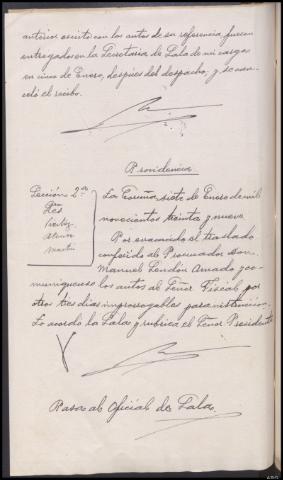 anterior escrito con los autos de su referencia, fueron
entregados en la Secretaria de Sala de mi cargo
en cinco de Enero, despues del despacho, y se acu-
só el recibo.
Providencia
Sección 2ª
La Coruña siete de Enero de mil
novecientos treinta y nueve
Por evacuado el traslado
conferido al Procurador Don
Manuel Pendon Amado y co-
muniquense los autos al Señor Fiscal por
otros tres dias improrrogables para instruccion.
Lo acordó la Sala y rubrica el Señor Presidente
Pasa al Oficial de Sala.